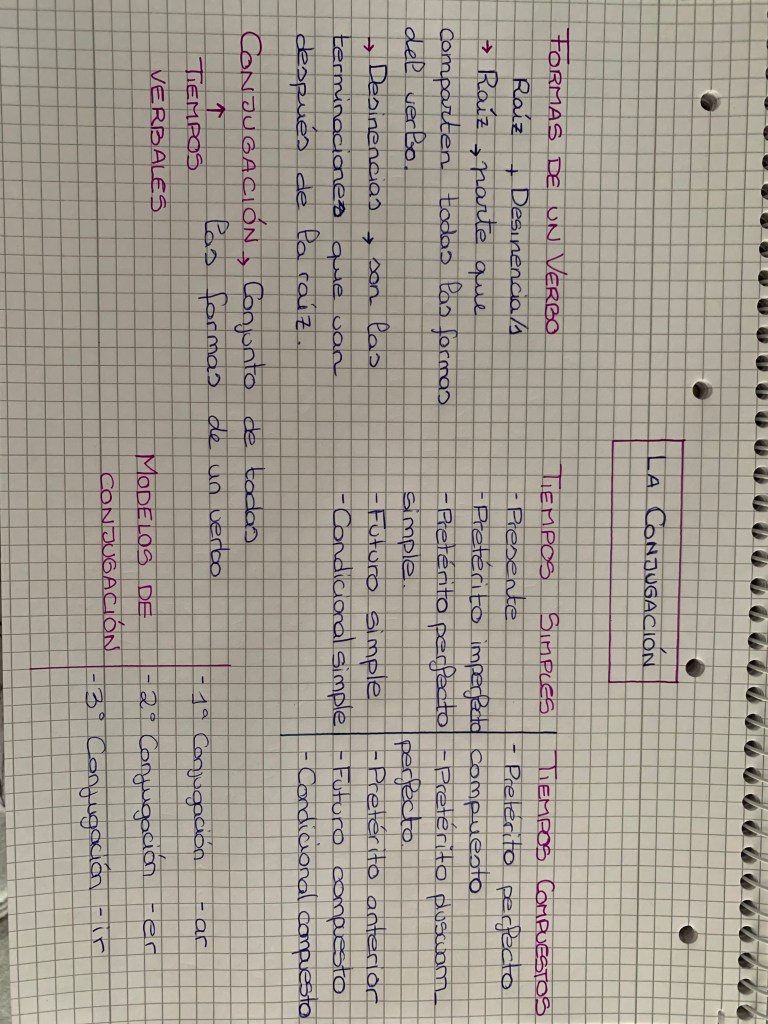 LA CONJUGACIÓN
FORMAS DE UN VERBO
Raíz + Desinencia/s
→ Raíz → parte que
comparten todas las formas
del verbo.
→ Desinencias → son las
terminaciones que van
después de la raíz.
TIEMPOS SIMPLES
- Presente
- Pretérito imperfecto
- Pretérito perfecto
simple.
- Futuro simple
- Condicional simple
TIEMPOS COMPUESTOS
- Pretérito perfecto
compuesto
- Pretérito pluscuam_
perfecto
- Pretérito anterior
- Futuro compuesto
- Condicional compuesto
CONJUGACIÓN → Conjunto de todas
las formas de un verbo
↑
TIEMPOS
VERBALES
MODELOS DE
CONJUGACIÓN
- 1º Conjugación -ar
- 2º Conjugación -er
- 3º Conjugación -ir